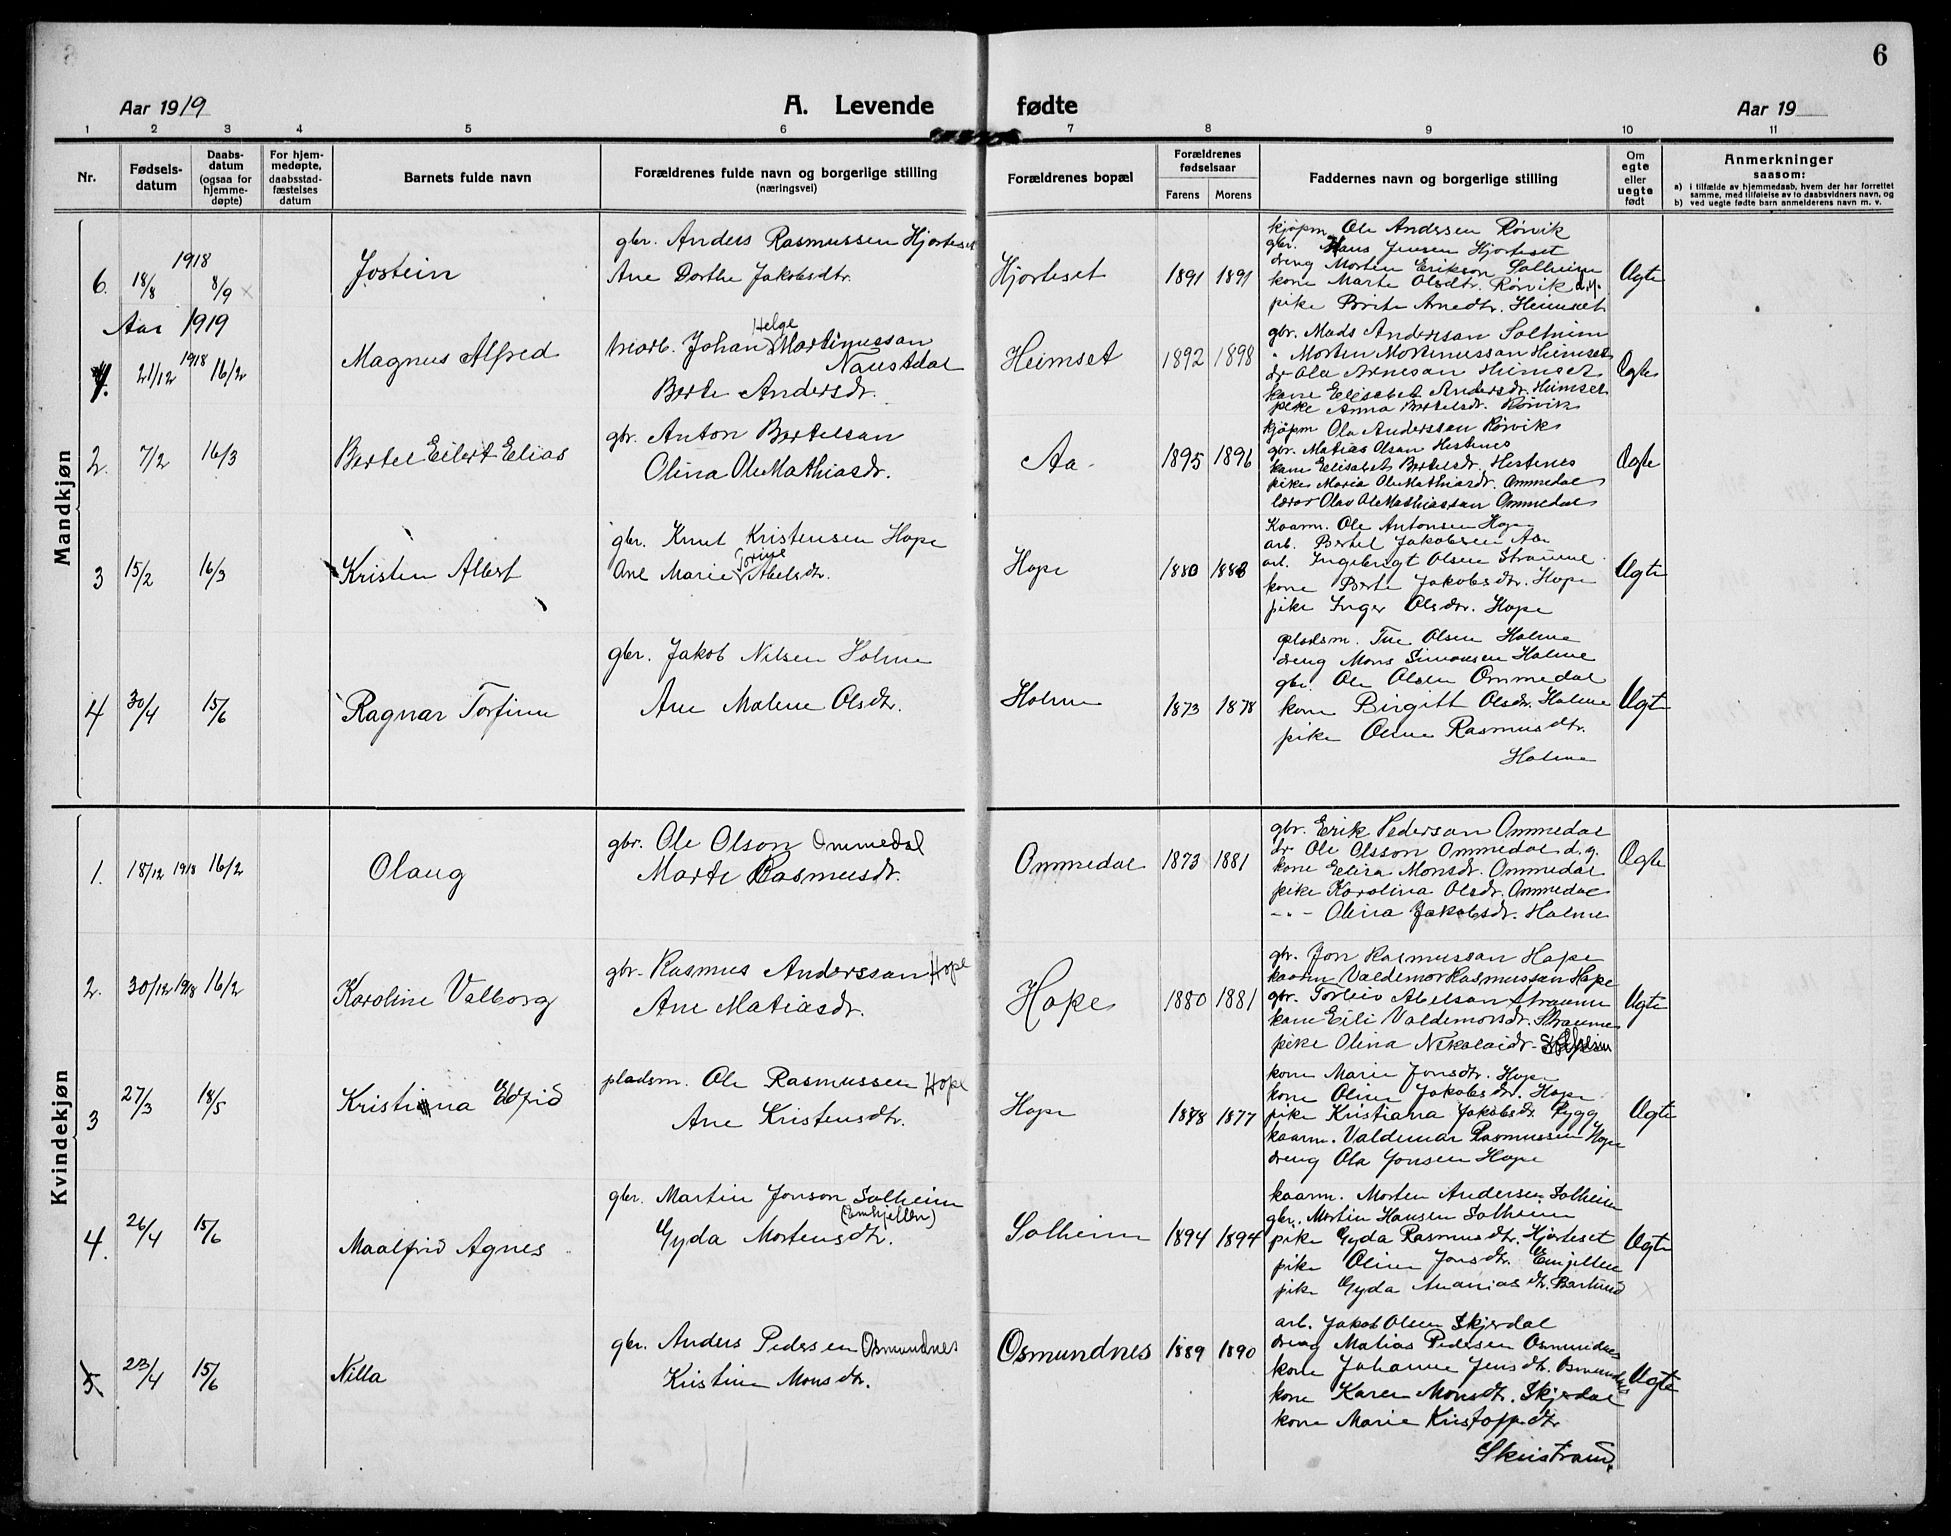 6
Aar 1919
A. Levende fødte
Aar 19
1 2 3 4 5 6 7 8 9 10 11
Nr.
Fødsels-
datum
Daabs-
datum
(ogsaa for
hjemme-
døpte)
For hjem-
medøpte,
daabsstad-
fæstelses
datum
Barnets fulde navn
Forældrenes fulde navn og borgerlige stilling
(næringsvei)
Forældrenes bopæl
Forældrenes
fødselsaar
Farens Morens
Faddernes navn og borgerlige stilling
Om
egte
eller
uegte
født
Anmerkninger
saasom:
a) i tilfælde av hjemmedaab, hvem der har forrettet
samme, med tilføielse av to daabsvidners navn, og
b) ved uegte fødte barn anmelderens navn m. v.
Mandkjøn
6. 18/8 1918 8/9
Jostein
gbr. Anders Rasmussen Hjorteset
Ane Dorthe Jakobsdtr.
Hjorteset
1891 1891
kjøpm Ole Andersen Rørvik
gbr. Hans Jensen Hjorteset
dreng Morten Erikson Solheim
kone Marte Olsdtr. Rørvik
pike Brite Arnedtr. Heimset
Ægte
Aar 1919
1. 21/12 1918 16/2
Magnus Alfred
Johan Helge Martinussan
Naustdal
Berte Andersdr.
Heimset
1892 1898
gbr. Mads Anderssan Solheim
" Morten Mortinussan Heimset
dr Ola Arnesan Heimset
kone Elisabet Andersdr. Heimset
pike Anna Bertelsdr. Rørvik
Ægte
2. 7/2 16/3
Bertel Eilert Elias
gbr. Anton Bertelsan
Olina OleMathiasdr.
Aa
1895 1896
kjøpm Ola Anderssan Rørvik
gbr. Matias Olsan Hestenes
kone Elisabet Bertelsdr. Hestenes
pike Maria OleMathiasdr. Ommedal
lærar Olav OleMathiassan Ommedal
Ægte
3 15/2 16/3
Kristen Albert
gbr. Knut Kristensen Hope
Ane Marie Torine Abelsdtr.
Hope
1880 1883
Kaarm. Ole Antonsen Hope
arb. Bertel Jakobsen Aa
arb. Ingebrigt Olsen Straume
kone Berte Jakobsdtr. Hope
pike Inger Olsdtr. Hope
Ægte
4 30/4 15/6
Ragnar Torfinn
gbr. Jakob Nilsen Holme
Ane Malene Olsdtr.
Holme
1873 1878
pladsm. Tue Olsen Holme
dreng Mons Simonsen Holme
gbr. Ole Olsen Ommedal
kone Birgitt Olsdtr. Holme
pike Oline Rasmusdtr.
Holme
Ægte
Kvindekjøn
1. 18/12 1918 16/2
Olaug
gbr. Ole Olson Ommedal
Marte Rasmusdr.
Ommedal
1873 1881
gbr. Erik Pedersan Ommedal
dr Ole Olsson Ommedal d.y.
kone Elisa Monsdr. Ommedal
pike Karolina Olsdr. Ommedal
-"- Olina Jakobsdr. Holme
Ægte
2. 30/12 1918 16/2
Karoline Valborg
gbr. Rasmus Anderssan Hope
Ane Matiasdr.
Hope
1880 1881
gbr. Jon Rasmussan Hope
kaarm Valdemar Rasmussan Hope
gbr. Torleiv Abelsan Straume
kone Eili Valdemarsdr. Straume
pike Olina Nikolaidr.
Ægte
3 27/3 18/5
Kristina Eldfrid
pladsm. Ole Rasmussen Hope
Ane Kristensdtr.
Hope
1878 1877
kone Marie Jonsdtr. Hope
kone Oline Jakobsdtr. Hope
pike Kristiana Jakobsdtr. Rygg
kaarm. Valdemar Rasmussen Hope
dreng Ola Jonsen Hope
Ægte
4. 26/4 15/6
Maalfrid Agnes
gbr. Martin Jonson Solheim
(Emhjellen)
Gyda Mortensdtr.
Solheim
1894 1894
kaarm. Morten Andersen Solheim
gbr. Martin Hansen Solheim
pike Gyda Rasmusdtr. Hjorteset
pike Oline Jonsdtr. Emjellen
pike Gyda Ananiasdtr. Barlund
Ægte
5 23/4 15/6
Nilla
gbr. Anders Pedersen Osmundnes
Kristine Monsdtr.
Osmundnes
1889 1890
arb. Jakob Olsen Skjerdal
dreng Matias Pedersen Osmundnes
kone Johanne Jensdtr. Osmundnes
kone Karen Monsdtr. Skjerdal
kone Marie Kristoffdtr
Skeistrand
Ægte